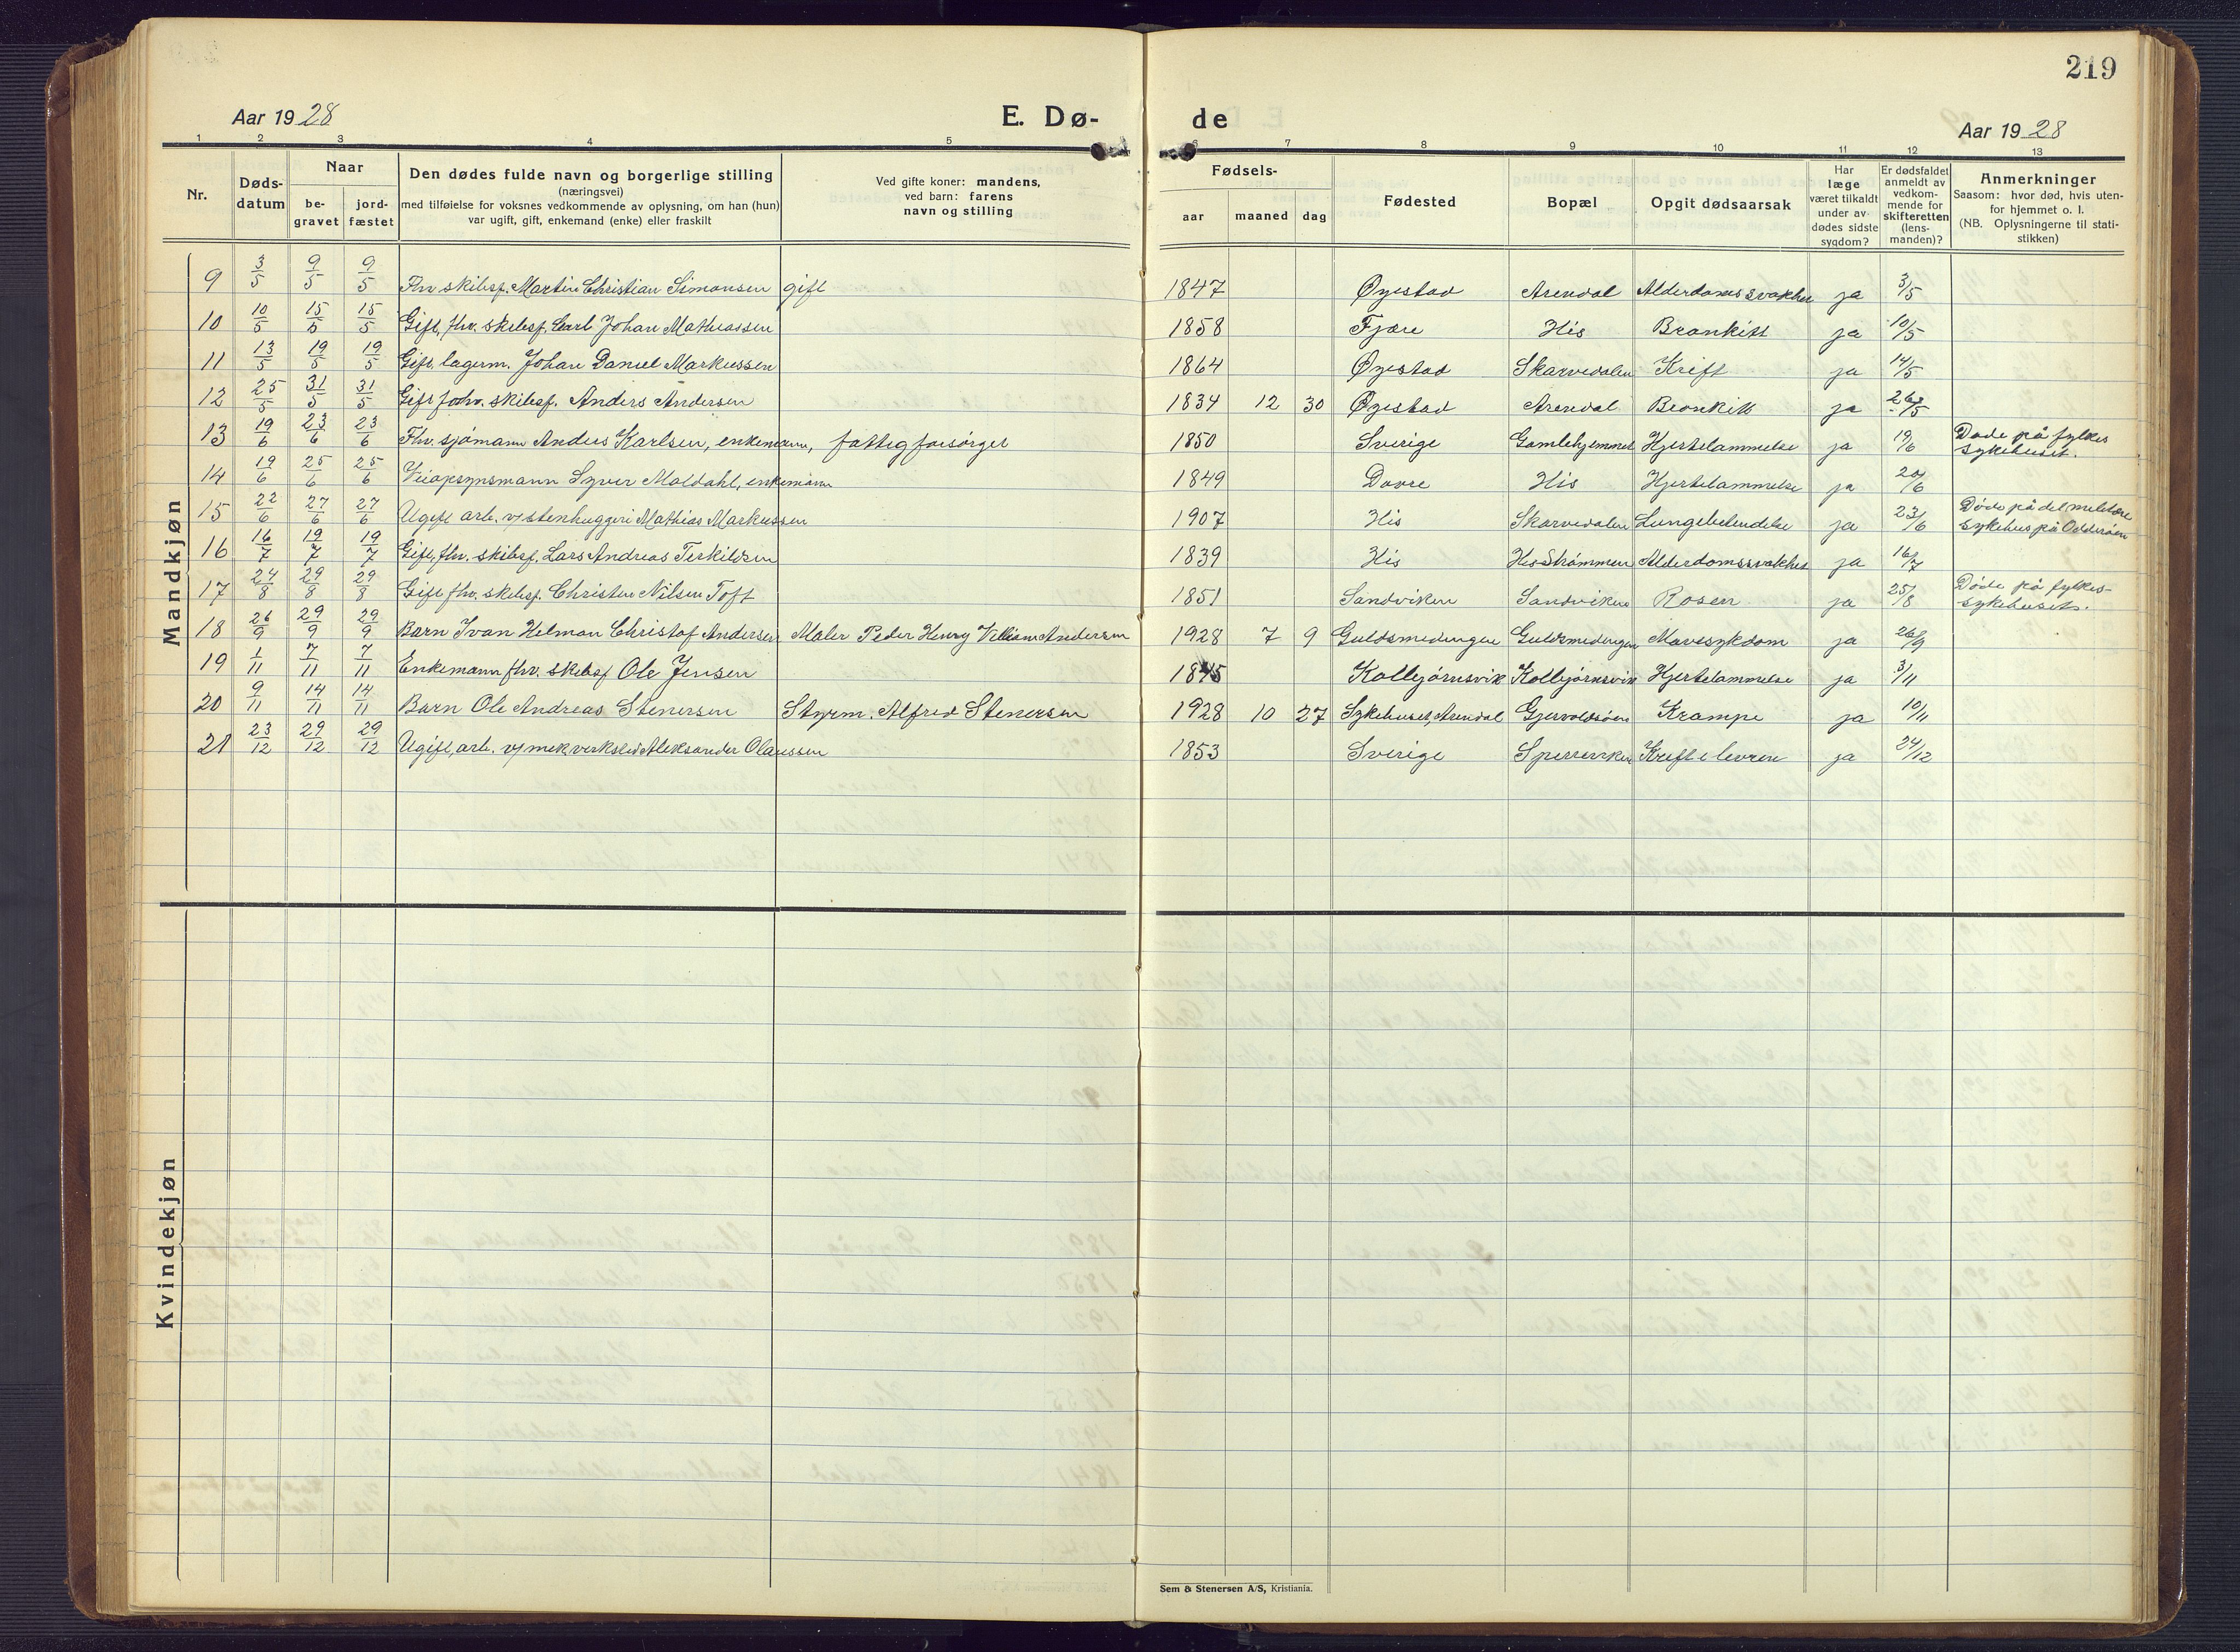 219
Aar 1928 E. Dø- de Aar 1928
1 2 3 4 5 6 7 8 9 10 11 12 13
Nr.
Døds-
datum
Naar
be-
gravet
jord-
fæstet
Den dødes fulde navn og borgerlige stilling
(næringsvei)
med tilføielse for voksnes vedkommende av oplysning, om han (hun)
var ugift, gift, enkemand (enke) eller fraskilt
Ved gifte koner: mandens,
ved barn: farens
navn og stilling
Fødsels-
aar maaned dag
Fødested
Bopæl
Opgit dødsaarsak
Har
læge
været tilkaldt
under av-
dødes sidste
sygdom?
Er dødsfaldet
anmeldt av
vedkom-
mende for
skifteretten
(lens-
manden)?
Anmerkninger
Saasom: hvor død, hvis uten-
for hjemmet o. l.
(NB. Oplysningerne til stati-
stikken)
Mandkjøn
9 3/5 9/5 9/5 Fhv. skibsf. Martin Christian Simonsen gift 1847 Øyestad Arendal Alderdomssvakhet ja 3/5
10 10/5 15/5 15/5 Gift, fhv. skibsf. Carl Johan Mathiassen 1858 Fjære His Bronkitt ja 10/5
11 13/5 19/5 19/5 Gift, lagerm. Johan Daniel Markussen 1864 Øyestad Skarvedalen Kreft ja 14/5
12 25/5 31/5 31/5 Gift fohv. skibsf. Anders Andersen 1834 12 30 Øyestad Arendal Bronkitt ja 26/5
13 19/6 23/6 23/6 Fhv. sjömann Anders Karlsen, enkemann, fattigforsörget 1850 Sverige Gamlehjemmet Hjertelammelse ja 19/6 Döde på fylkes
sykehuset.
14 19/6 25/6 25/6 Veiopsynsmann Syver Moldahl, enkemann 1849 Dovre His Hjertelammelse ja 20/6
15 22/6 27/6 27/6 Ugift arb. v/stenhuggeri Mathias Markussen 1907 His Skarvedalen Lungebetendelse ja 23/6 Döde på det militære
sykehus på Odderöen
16 16/7 19/7 19/7 Gift, fhv. skibsf. Lars Andreas Terkildsen 1839 His His Strömmen Alderdomssvakhet ja 16/7
17 24/8 29/8 29/8 Gift fhv. skibsf. Christen Nilsen Toft 1851 Sandviken Sandviken Rosen ja 25/8 Döde på fylkes-
sykehuset.
18 26/9 29/9 29/9 Barn Ivan Helman Christof Andersen Maler Peder Henry Villiam Andersen 1928 7 9 Guldsmedengen Guldsmedengen Mavesykdom ja 26/9
19 1/11 7/11 7/11 Enkemann fhv. skibsf Ole Jensen 1845 Kolbjörnsvik Kolbjörnsvik Hjertelammelse ja 3/11
20 9/11 14/11 14/11 Barn Ole Andreas Stenersen Styrm. Alfred Stenersen 1928 10 27 Sykehuset, Arendal Gjervoldsöen Krampe ja 10/11
21 23/12 29/12 29/12 Ugift, arb. v/mek. verksted Aleksander Olaussen 1853 Sverige Sperreviken Kreft i levren ja 24/12
Kvindekjøn
Sem & Stenersen A/S, Kristiania.